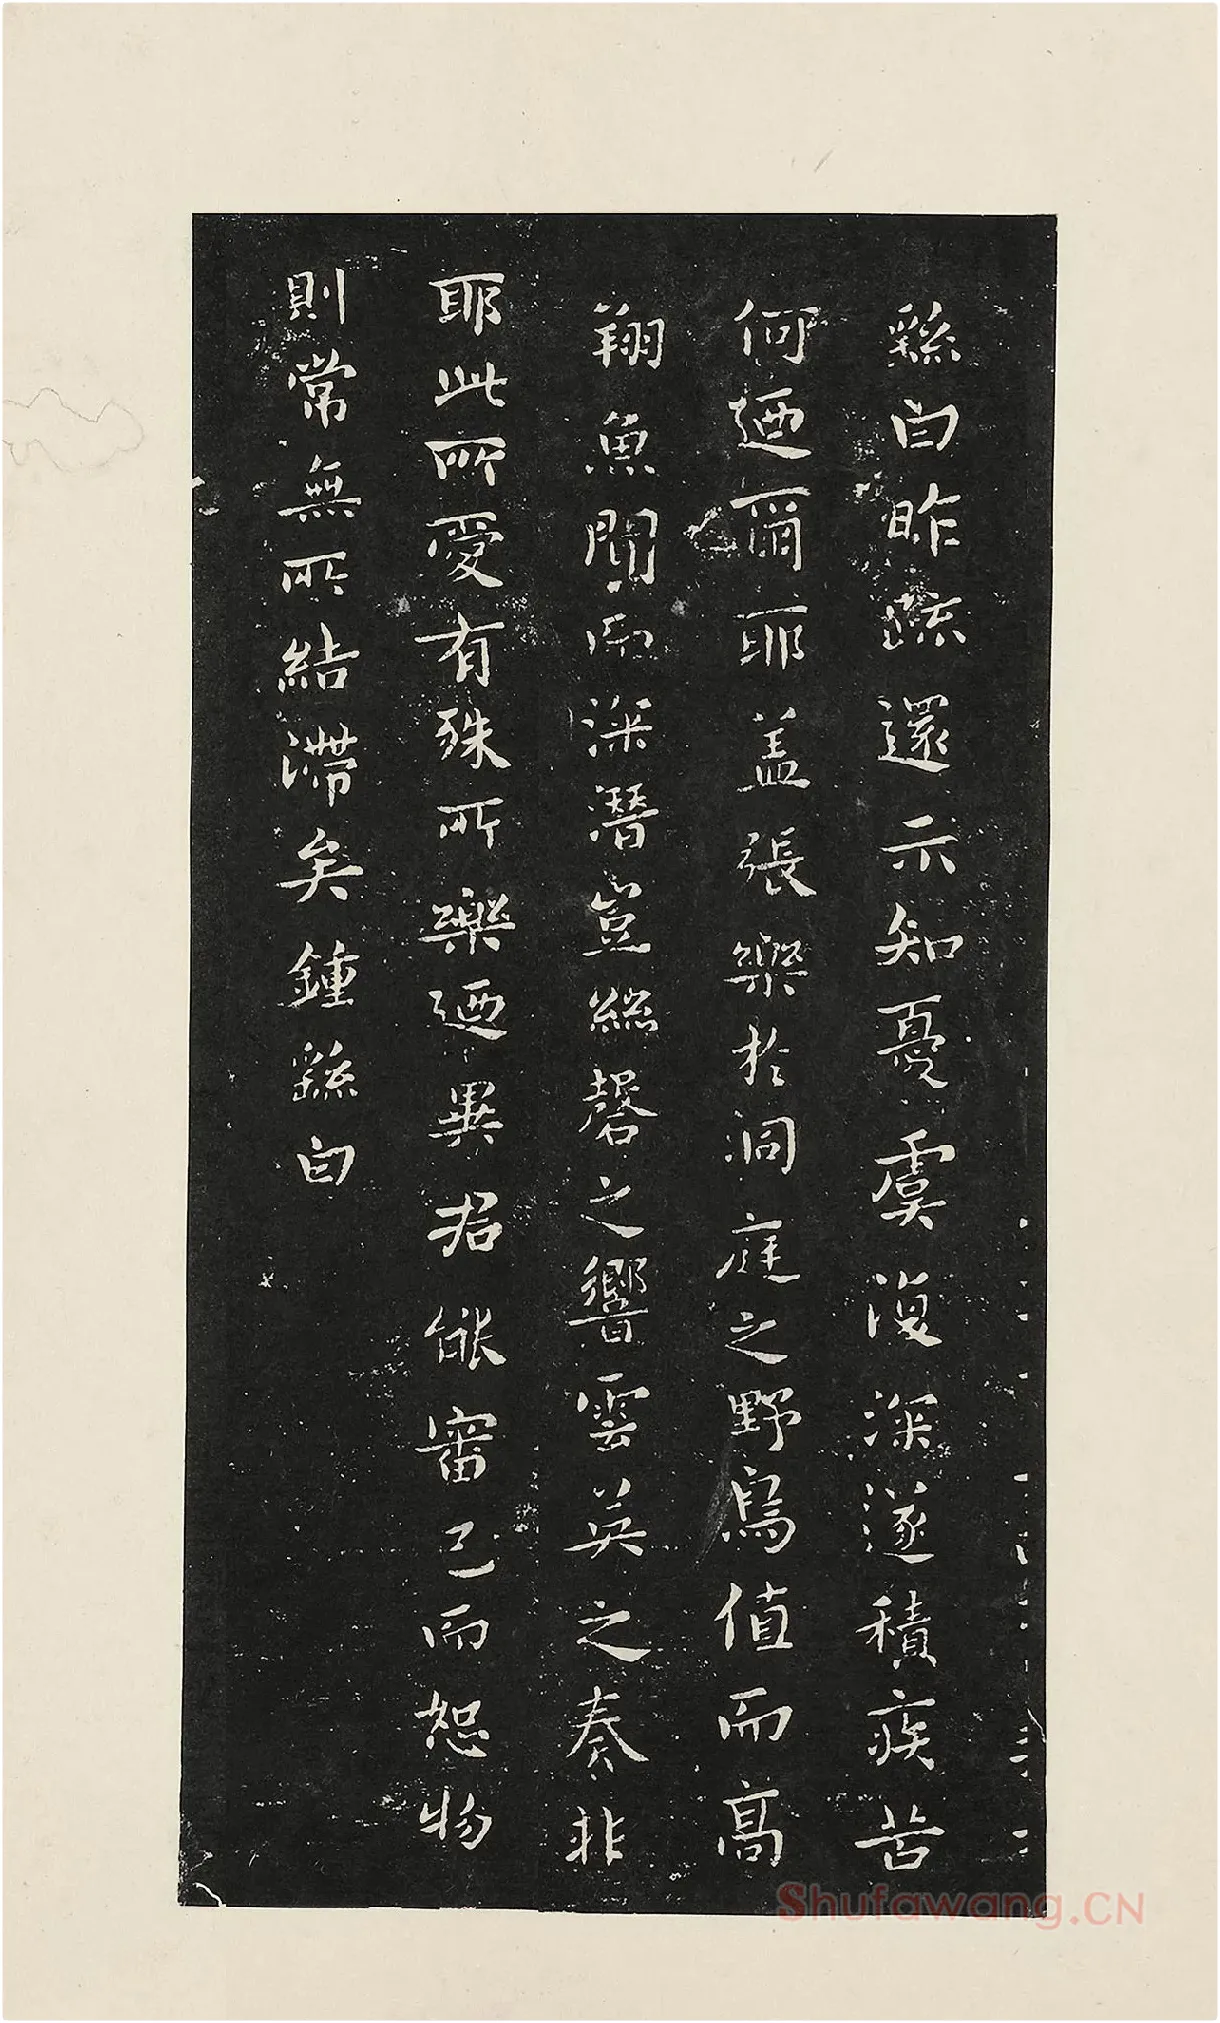 繇白昨疏還示知憂虞復深遂積疾苦
何迺爾耶盖張樂於洞庭之野鳥值而高
翔魚聞而深潛豈絲磬之響雲英之奏非
耶此所愛有殊所樂迺異君能審己而恕物
則常無所結滯矣鍾繇白
Shufawang.CN